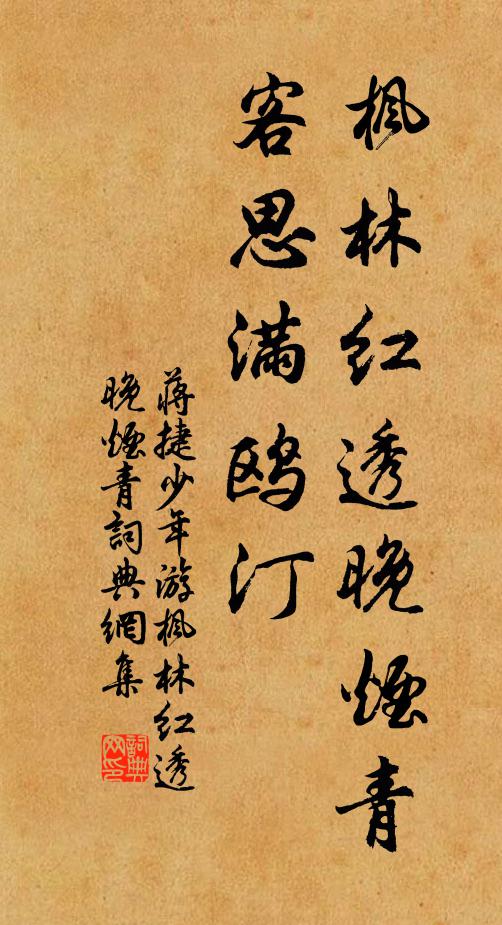 楓林紅透晚煙青
客思滿鷗汀
蔣捷少年游楓林紅透
晚煙青詞典網集
詞典
网印